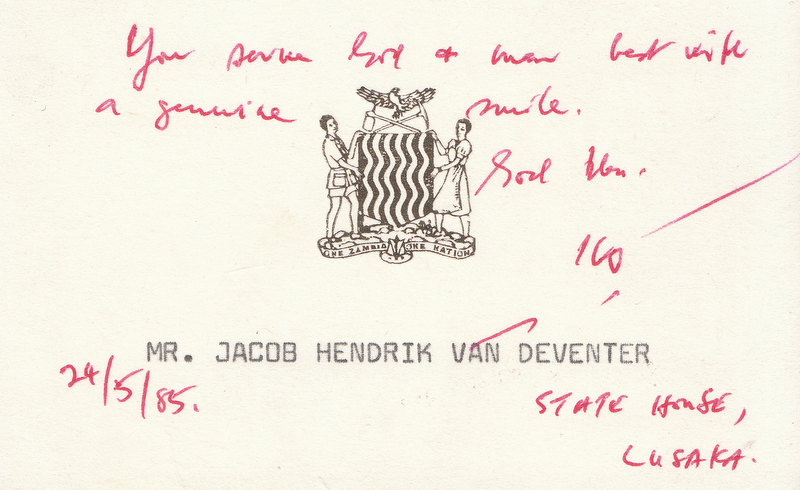 You serve God & man best with
a genuine smile.
God bless.
ONE ZAMBIA ONE NATION
MR. JACOB HENDRIK VAN DEVENTER
24/5/85.
STATE HOUSE,
LUSAKA.